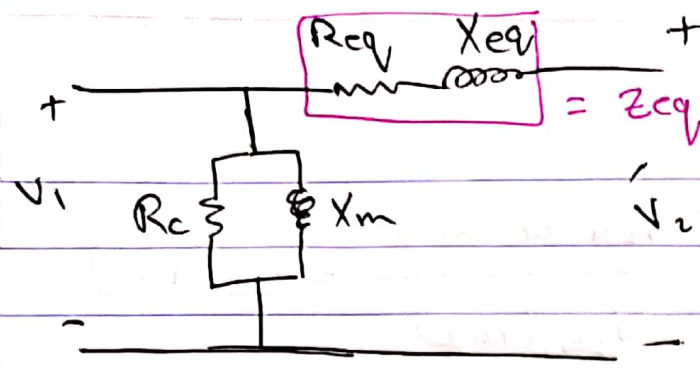 Req Xeq +
+ = Zeq
V1 Rc Xm V2'
- -